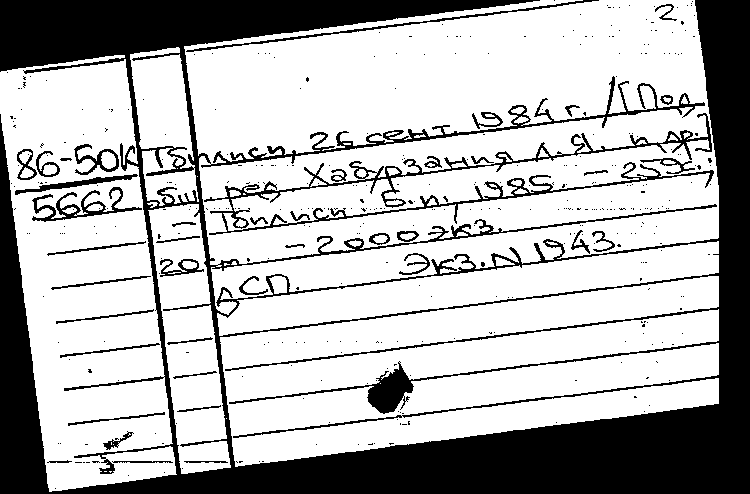 2.
86-50К Тбилиси, 26 сент. 1984 г. /[Под
5662 общ. ред. Хабурзания Л.Я. и др.]
. – Тбилиси : Б.и., 1985. – 259с.;
20 см. – 2000 экз.
ДСП. Экз. N 1943.